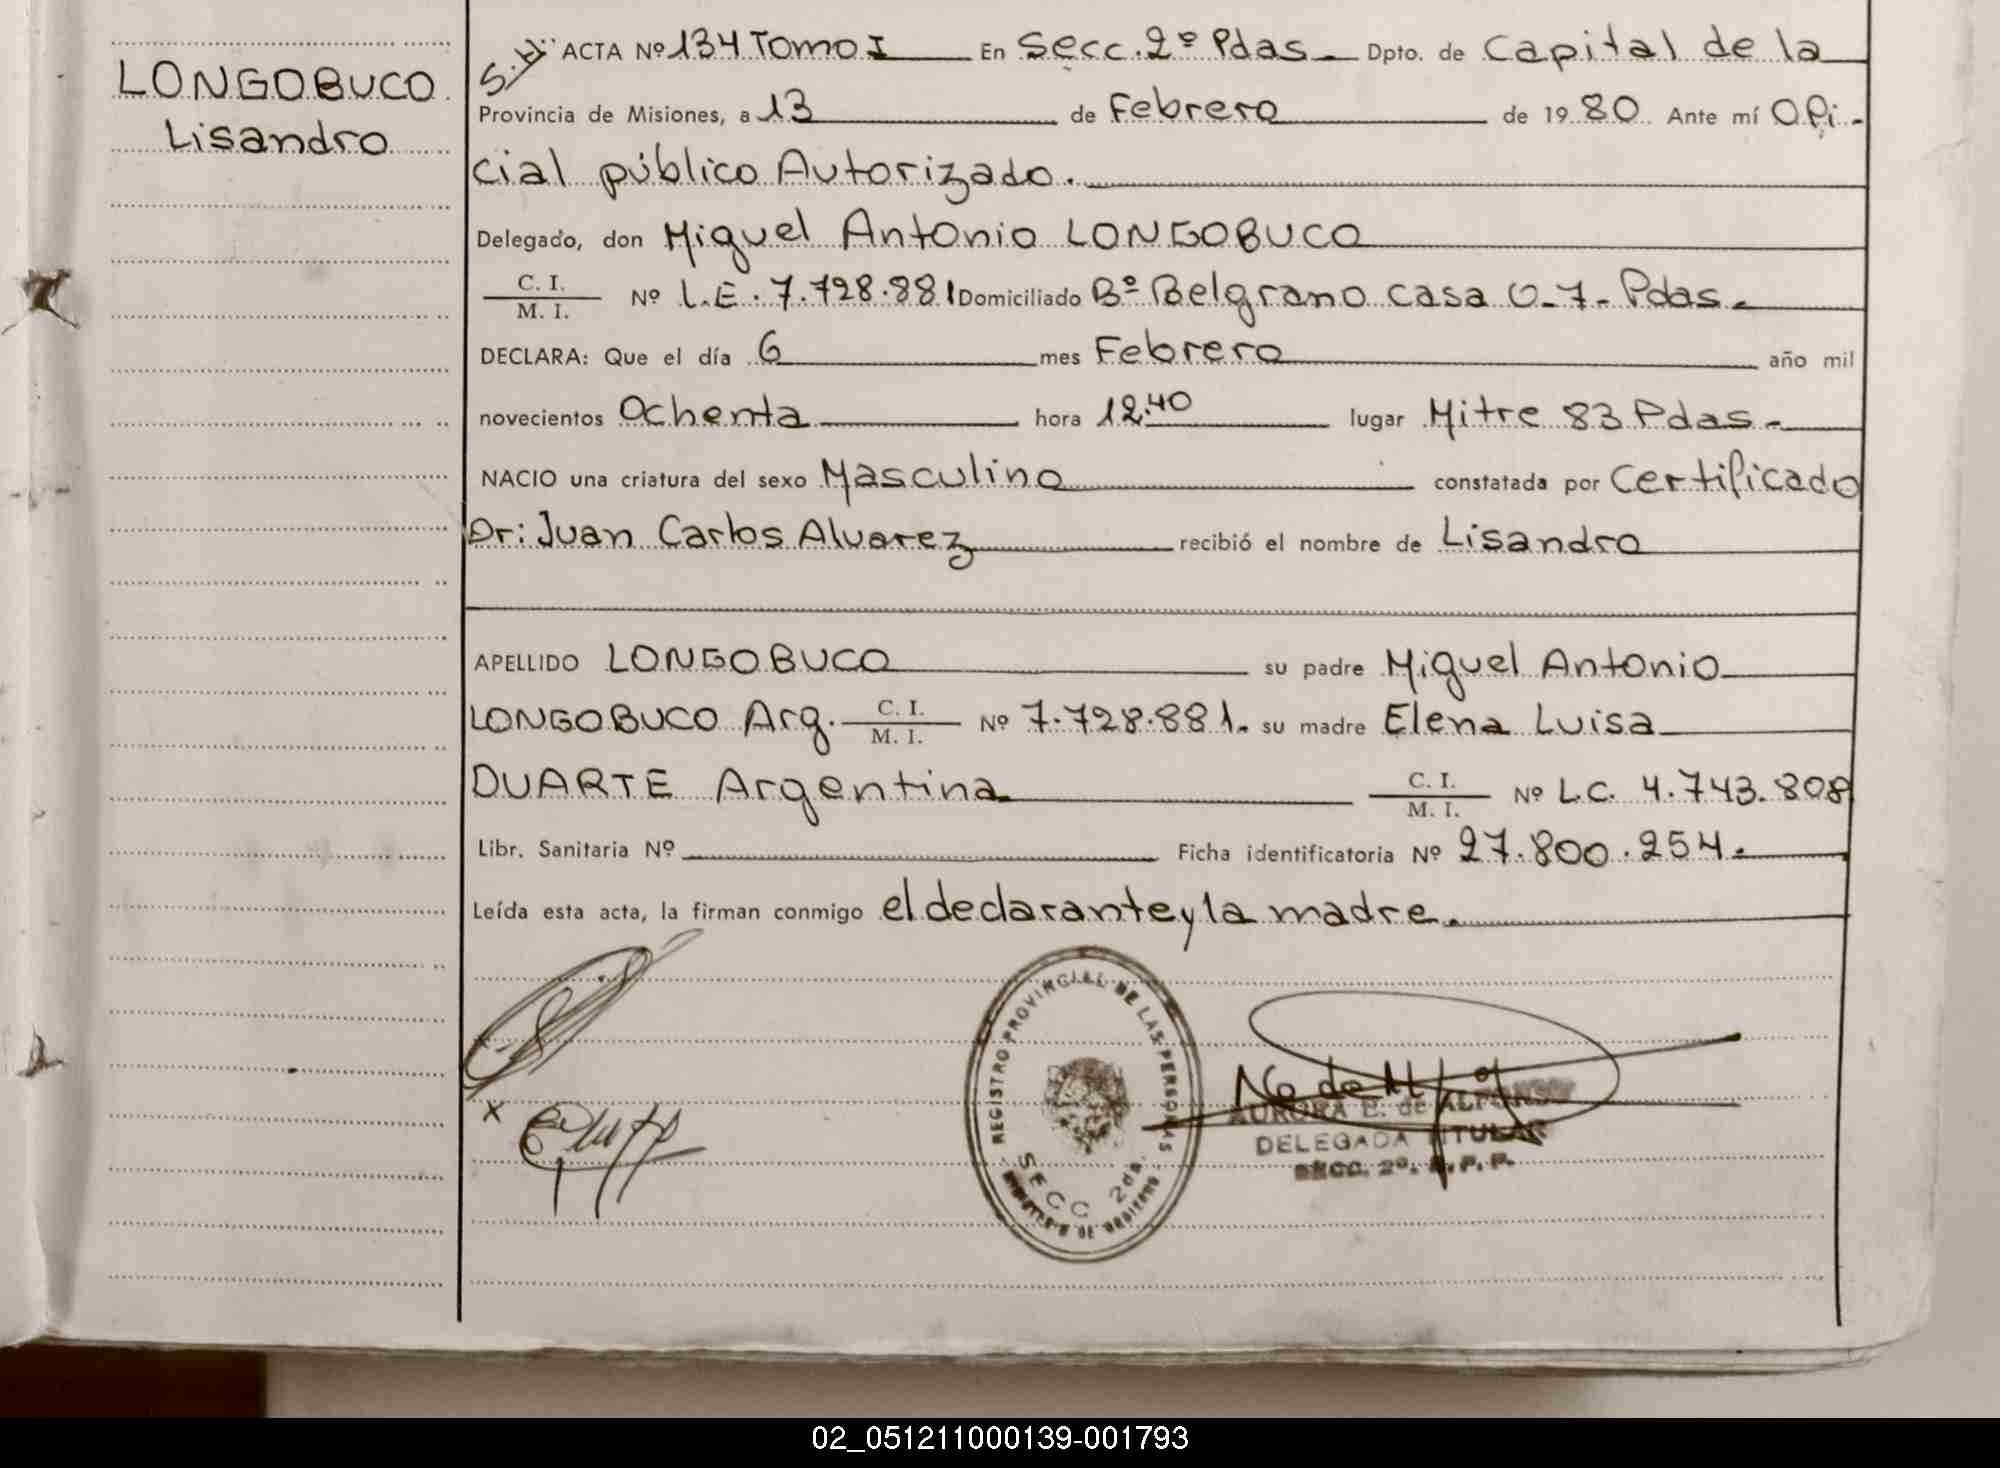 LONGOBUCO
Lisandro
ACTA Nº 134 Tomo I En Secc. 2º Pdas. Dpto. de Capital de la
Provincia de Misiones, a 13 de Febrero de 1980. Ante mí Ofi-
cial público Autorizado.
Delegado, don Miguel Antonio LONGOBUCO
C. I. / M. I. Nº L.E. 7.728.881 Domiciliado Bº Belgrano casa 0-7- Pdas.
DECLARA: Que el día 6 mes Febrero año mil
novecientos Ochenta hora 12.40 lugar Mitre 83 Pdas.
NACIO una criatura del sexo Masculino constatada por Certificado
Dr: Juan Carlos Alvarez recibió el nombre de Lisandro
APELLIDO LONGOBUCO su padre Miguel Antonio
LONGOBUCO Arg. C. I. / M. I. Nº 7.728.881. su madre Elena Luisa
DUARTE Argentina C. I. / M. I. Nº L.C. 4.743.808
Libr. Sanitaria Nº Ficha identificatoria Nº 27.800.254.
Leída esta acta, la firman conmigo el declarante y la madre.
REGISTRO PROVINCIAL DE LAS PERSONAS
SECC 2da.
AURORA E. de ALFONSO
DELEGADA TITULAR
SECC. 2º. R. P. P.
02_051211000139-001793